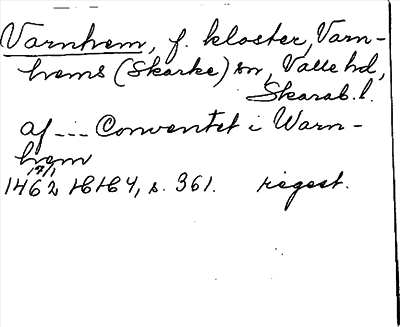 Varnhem, f. kloster, Varn-
hems (Skarke) sn, Valle hd,
Skarab. l.
af --- Conventet i Warn-
hem
17/1
1462 HH 4, s. 361. regest.